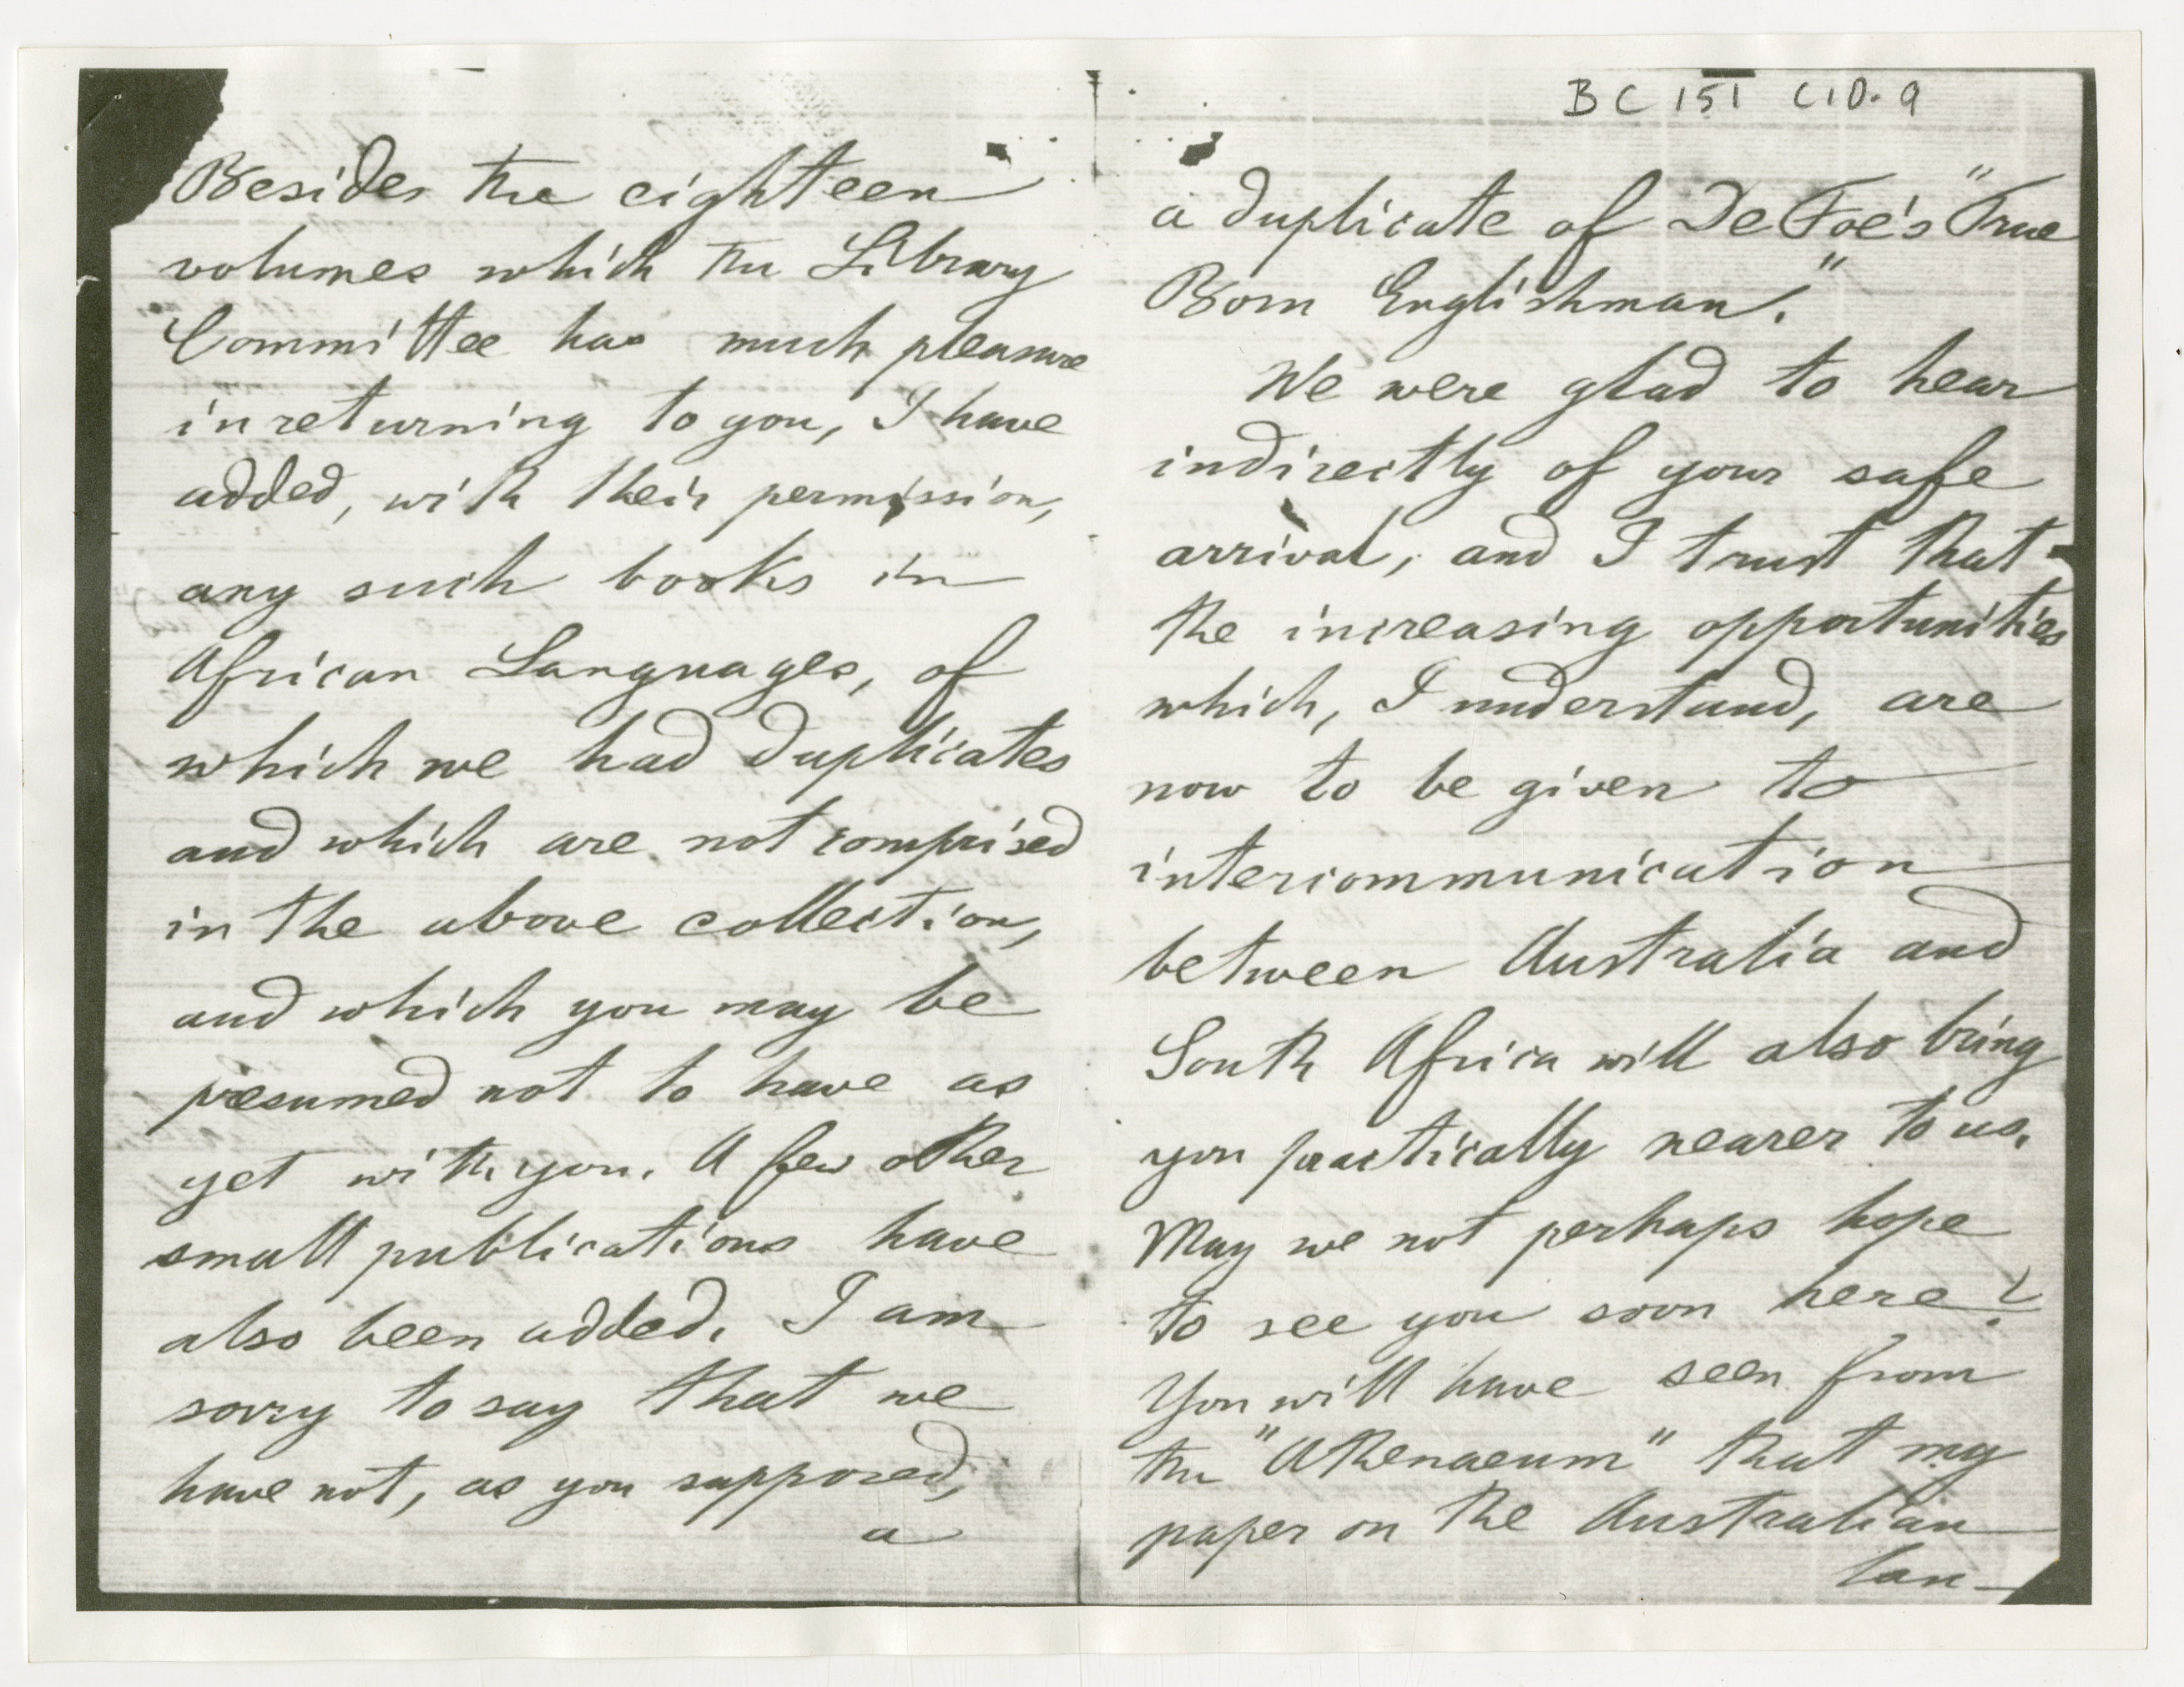 Besides the eighteen
volumes which the Library
Committee has much pleasure
in returning to you, I have
added, with their permission,
any such books in
African Languages, of
which we had duplicates
and which are not comprised
in the above collection,
and which you may be
presumed not to have as
yet with you. A few other
small publications have
also been added. I am
sorry to say that we
have not, as you supposed,
a
BC 151 C10.9
a duplicate of De Foe's "True
Born Englishman."
We were glad to hear
indirectly of your safe
arrival, and I trust that
the increasing opportunities
which, I understand, are
now to be given to
intercommunication
between Australia and
South Africa will also bring
you practically nearer to us.
May we not perhaps hope
to see you soon here?
You will have seen from
the "Athenaeum" that my
paper on the Australian
lan-